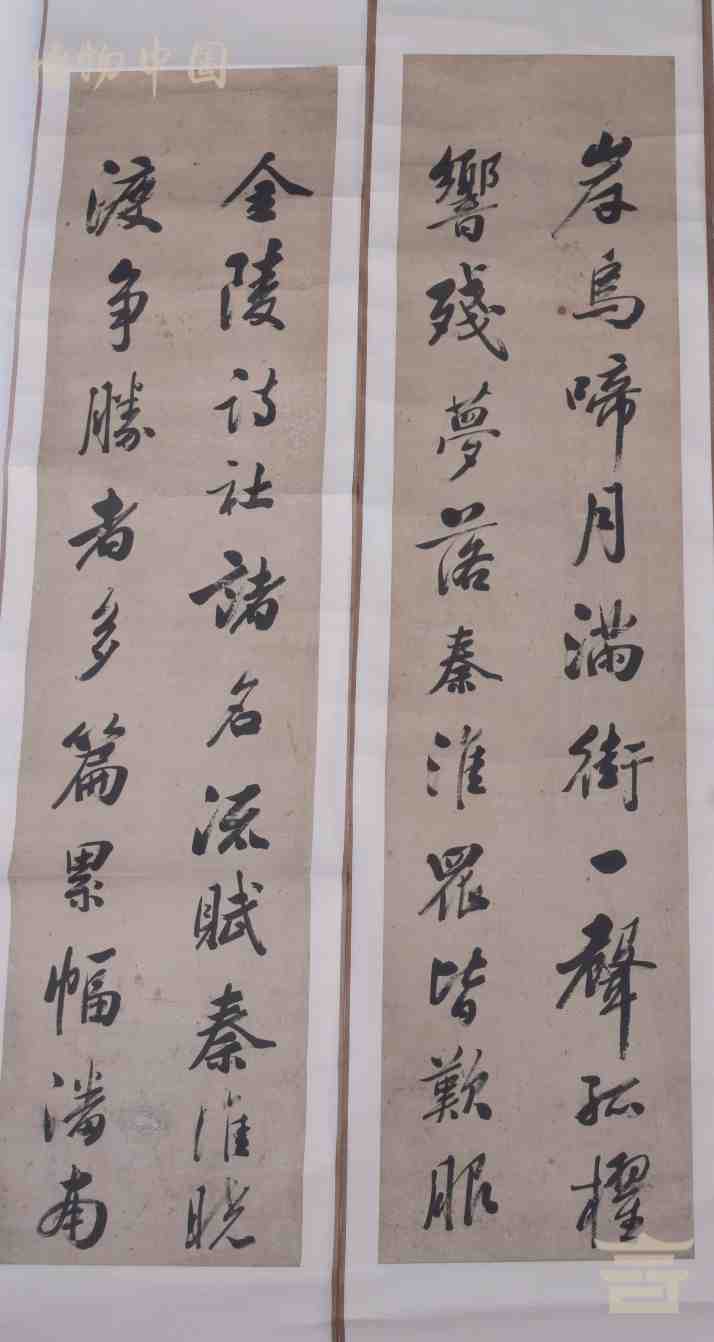 博物中国
金陵詩社諸名流賦秦淮曉
渡争勝者多篇累幅潘南
岸烏啼月滿街一聲孤櫂
響殘夢落秦淮眾皆歎服